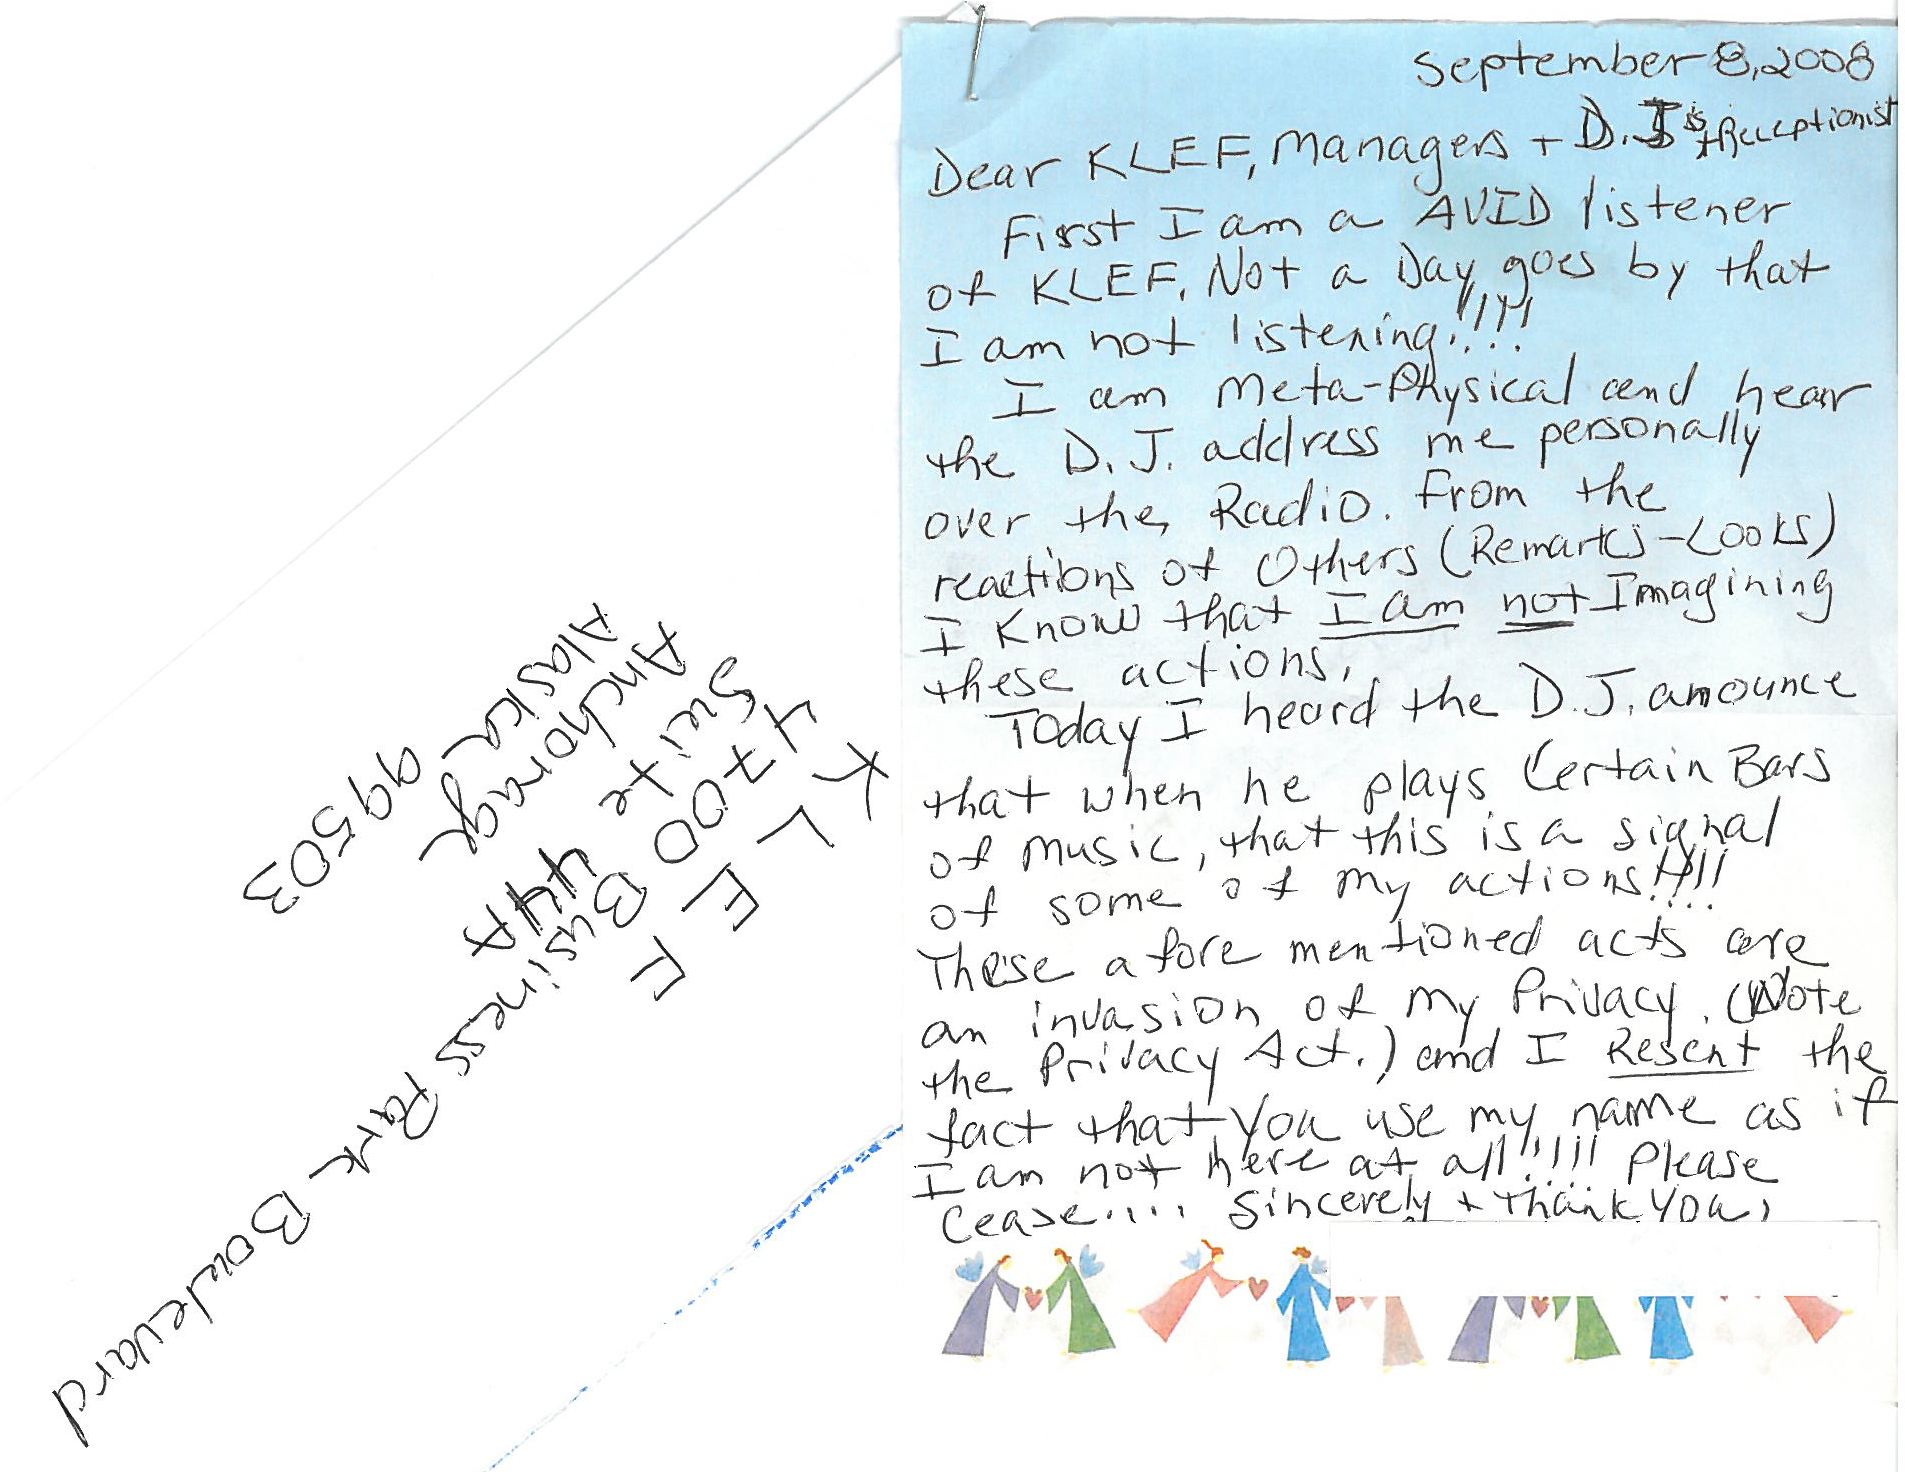 September 8, 2008
Dear KLEF, Managers + D.J.'s + Receptionist
First I am a AVID listener
of KLEF. Not a Day goes by that
I am not listening!!!!
I am Meta-Physical and hear
the D.J. address me personally
over the, Radio. From the
reactions of Others (Remarks-Looks)
I Know that I am not Imagining
these actions.
Today I heard the D.J. anounce
that when he plays Certain Bars
of music, that this is a signal
of some of my actions!!!!
These afore mentioned acts are
an invasion of my Privacy. (Note
the Privacy Act.) and I Resent the
fact that You use my name as if
I am not here at all!!!!! Please
Cease.... Sincerely + Thank You,
KLEF
4700 Business Park Boulevard
Suite 44A
Anchorage
Alaska 99503